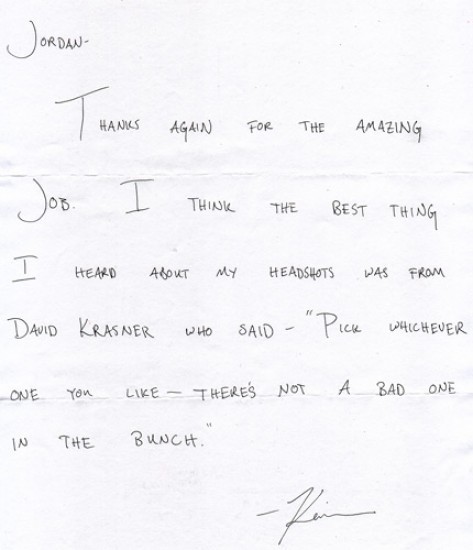 JORDAN-
THANKS AGAIN FOR THE AMAZING
JOB. I THINK THE BEST THING
I HEARD ABOUT MY HEADSHOTS WAS FROM
DAVID KRASNER WHO SAID - "PICK WHICHEVER
ONE YOU LIKE - THERE'S NOT A BAD ONE
IN THE BUNCH."